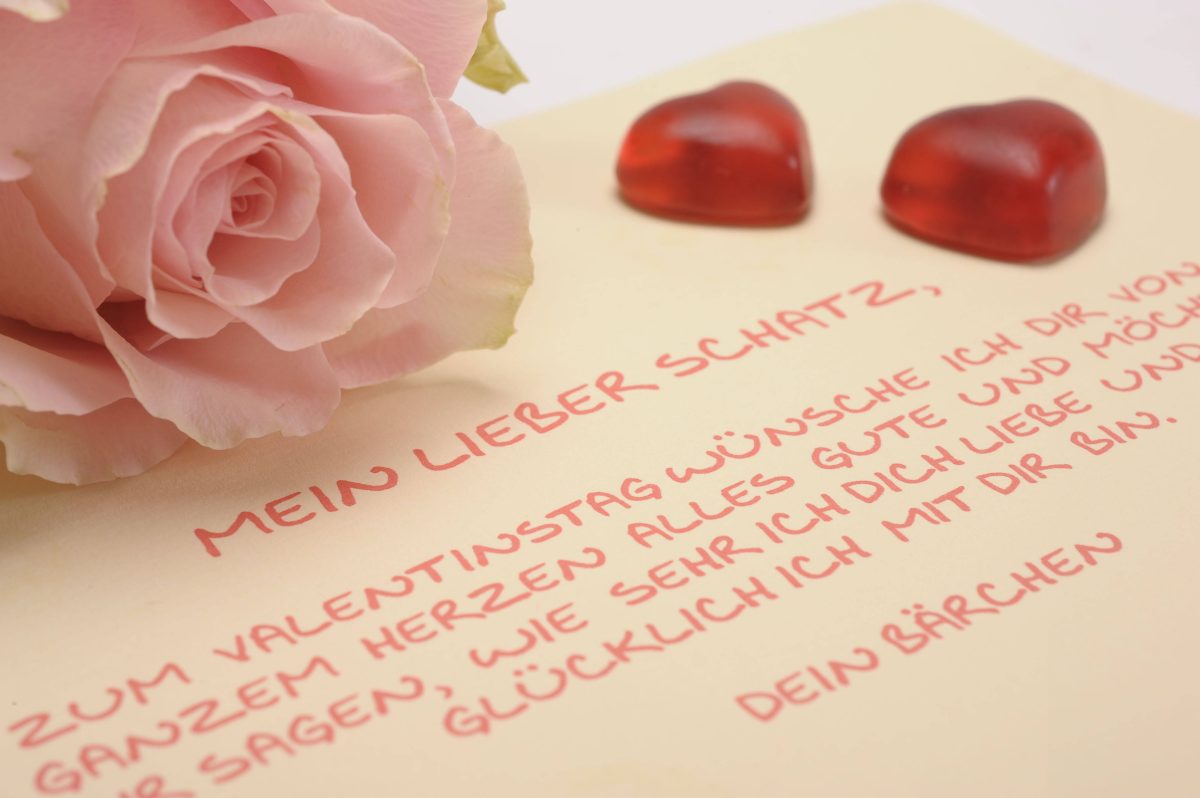 MEIN LIEBER SCHATZ,
ZUM VALENTINSTAG WÜNSCHE ICH DIR VON
GANZEM HERZEN ALLES GUTE UND
SAGEN, WIE SEHR ICH DICH LIEBE UND
GLÜCKLICH ICH MIT DIR BIN.
DEIN BÄRCHEN